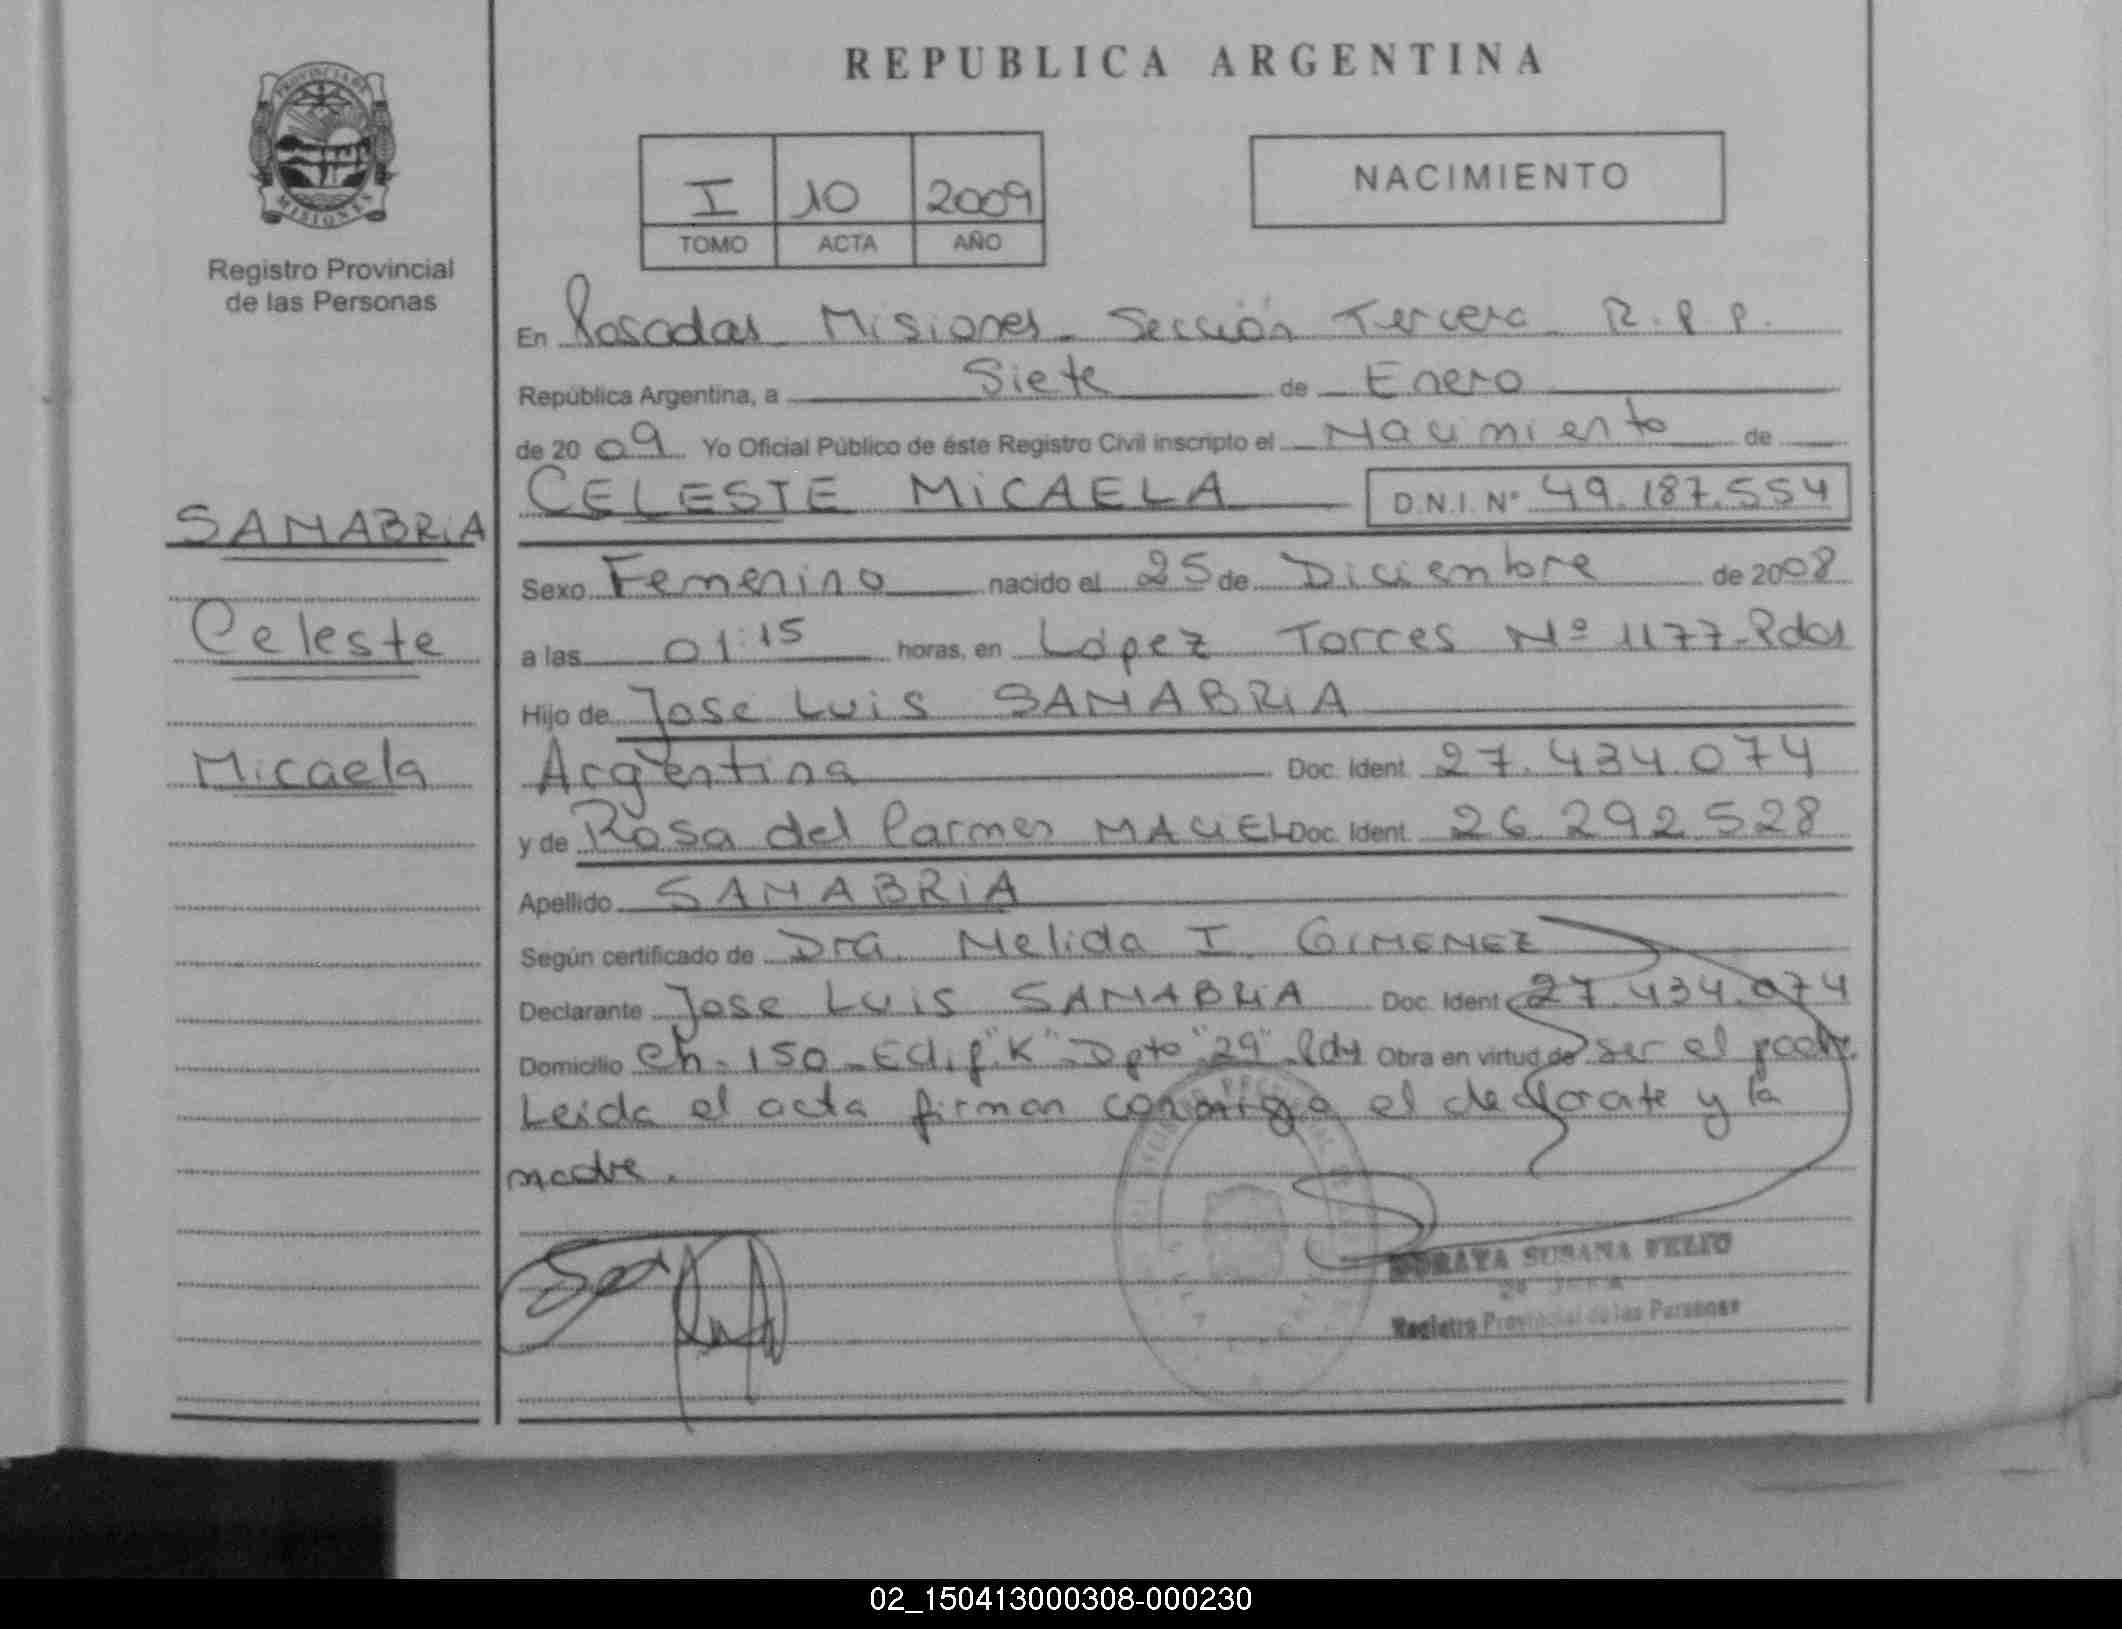 REPUBLICA ARGENTINA
PROVINCIA DE
MISIONES
Registro Provincial
de las Personas
I 10 2009
TOMO ACTA AÑO
NACIMIENTO
En Posadas Misiones Sección Tercera R.P.P.
República Argentina, a Siete de Enero
de 2009 Yo Oficial Público de éste Registro Civil inscripto el Nacimiento de
CELESTE MICAELA D.N.I. Nº 49.187.554
SANABRIA
Celeste
Micaela
Sexo Femenino nacido el 25 de Diciembre de 2008
a las 01:15 horas, en López Torres Nº 1177-Pdas
Hijo de Jose Luis SANABRIA
Argentina Doc. Ident. 27.434.074
y de Rosa del Carmen MACIEL Doc. Ident. 26.292.528
Apellido SANABRIA
Según certificado de Dra. Nelida I. GIMENEZ
Declarante Jose Luis SANABRIA Doc. Ident. 27.434.074
Domicilio Ch. 150 - Edif "K" Dpto "29" Pdas Obra en virtud de ser el padre.
Leida el acta firman conmigo el declarate y la
madre.
SUSANA FELIO
Registro Provincial de las Personas
02_150413000308-000230